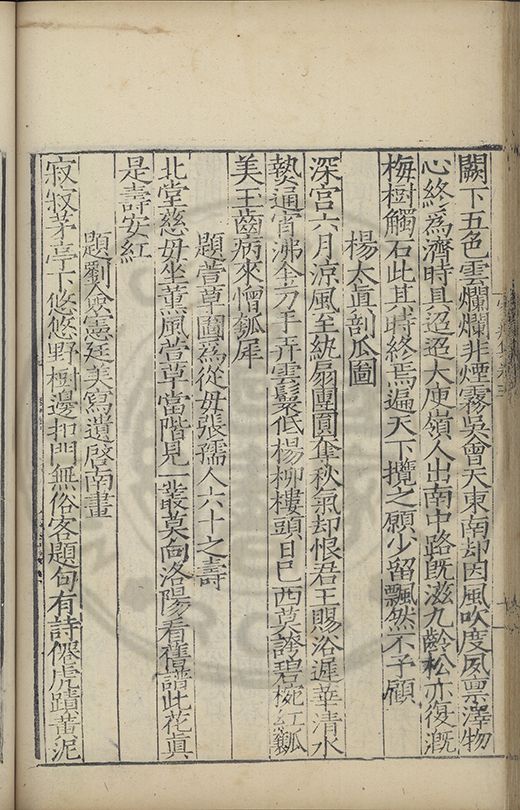 闕下五色雲爛爛非煙霧吳會天東南却因風吹度夙禀澤物
心終爲濟時具迢迢大庾嶺人出南中路旣滋九齡松亦復漑
梅樹觸石此其時終焉遍天下攬之願少留飄然不予顧
楊太眞剖瓜圖
深宮六月凉風至紈扇團圓奪秋氣却恨君王賜浴遲華清水
埶通宵沸金刀手弄雲鬟低楊柳樓頭日巳西莫誇碧椀紅瓤
美玉齒病來憎瓠犀
題萱草圖爲從母張孺人六十之壽
北堂慈母坐薰風萱草當階見一叢莫向洛陽看舊譜此花眞
是壽安紅
題劉僉憲廷美寫遺啓南畫
寂寂茅亭下悠悠野樹邊扣門無俗客題句有詩僊虎蹟黃泥